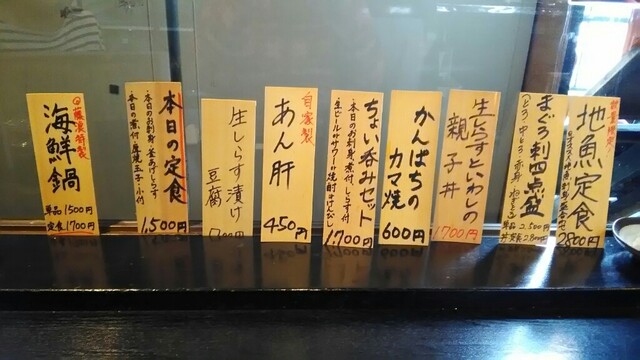 地魚定食
2800円
まぐろ刺四点盛
単品 2,500円
定食 2800円
生しらすといわしの
親子丼
1700円
かんぱちの
カマ焼
600円
ちょい呑みセット
・本日のお刺身、煮付、しらす付
1,700円
自家製
あん肝
450円
生しらす漬け
豆腐
本日の定食
・本日のお刺身、釜あげしらす
・本日の煮付・厚焼玉子・小付
1,500円
海鮮鍋
単品 1500円
定食 1700円